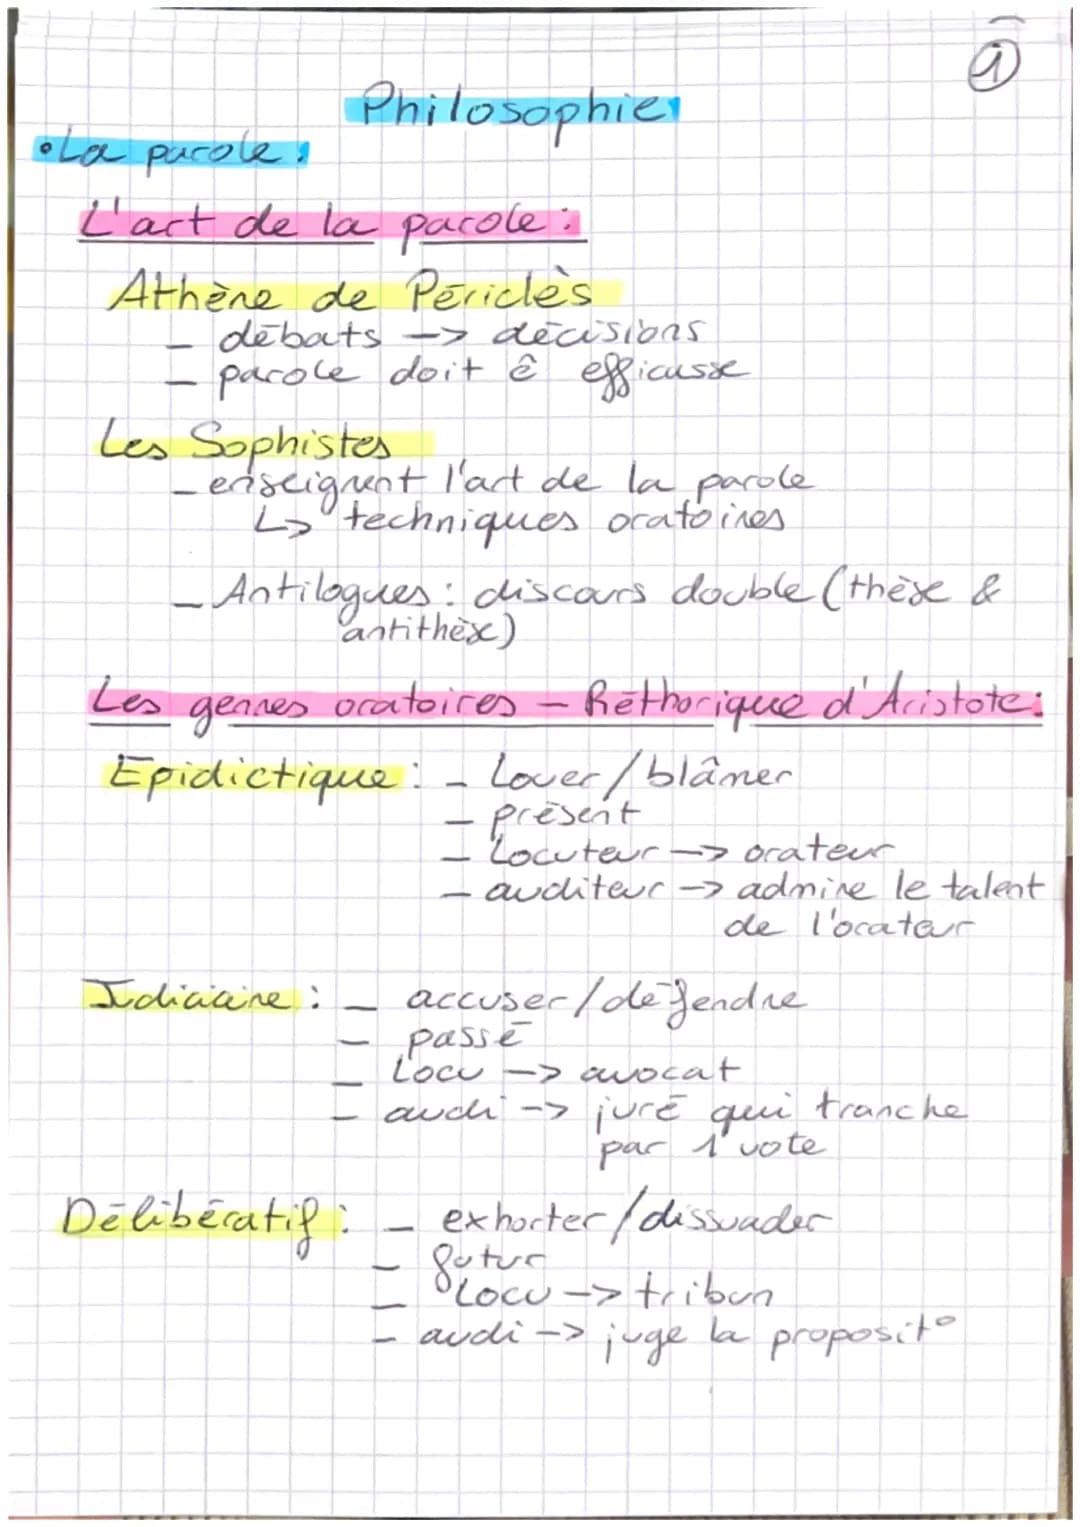 1
Philosophie
• La parole :
L'art de la parole :
Athène de Périclès
- débats -> décisions
- parole doit ê efficasse
Les Sophistes
- enseignent l'art de la parole
↳ techniques oratoires
- Antilogues : discours double (thèse &
antithèse)
Les genres oratoires - Réthorique d'Aristote :
Epidictique : - Louer/blâmer
- présent
- Locuteur -> orateur
- auditeur -> admire le talent
de l'orateur
Judiciaire : - accuser/défendre
- passé
- Locu -> avocat
- audi -> juré qui tranche
par 1 vote
Délibératif : - exhorter/dissuader
- futur
- Locu -> tribun
- audi -> juge la propositº